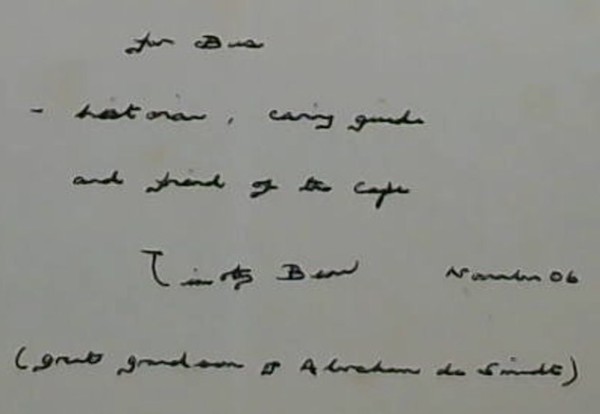 for
- historian, caring guide
and friend of the Cape
Timothy November 06
(great grandson of Abraham de Smidt)